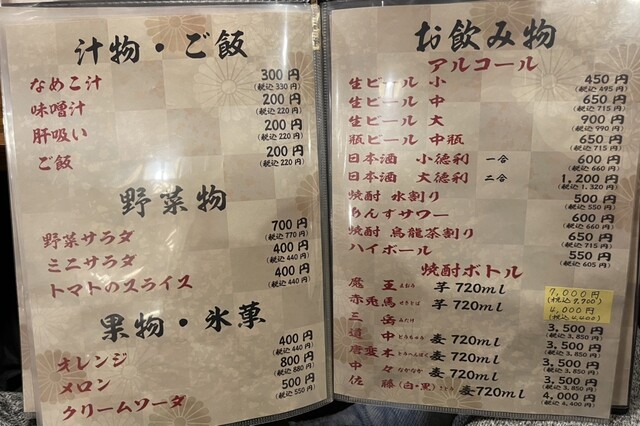 汁物・ご飯
なめこ汁 300円 (税込330円)
味噌汁 200円 (税込220円)
肝吸い 200円 (税込220円)
ご飯 200円 (税込220円)
野菜物
野菜サラダ 700円 (税込770円)
ミニサラダ 400円 (税込440円)
トマトのスライス 400円 (税込440円)
果物・氷菓
オレンジ 400円 (税込440円)
メロン 800円 (税込880円)
クリームソーダ 500円 (税込550円)
お飲み物
アルコール
生ビール 小 450円 (税込495円)
生ビール 中 650円 (税込715円)
生ビール 大 900円 (税込990円)
瓶ビール 中瓶 650円 (税込715円)
日本酒 小徳利 一合 600円 (税込660円)
日本酒 大徳利 二合 1,200円 (税込1,320円)
焼酎 水割り 500円 (税込550円)
あんずサワー 600円 (税込660円)
焼酎 烏龍茶割り 650円 (税込715円)
ハイボール 550円 (税込605円)
焼酎ボトル
魔王 まおう 芋720ml 7,000円 (税込7,700円)
赤兎馬 せきとば 芋720ml 4,000円 (税込4,400)
三岳 みたけ 3,500円 (税込3,850円)
道中 麦720ml 3,500円 (税込3,850円)
唐変木 とうへんぼく 麦720ml 3,500円 (税込3,850円)
中々 なかなか 麦720ml 3,500円 (税込3,850円)
佐藤(白・黒) さとう 麦720ml 4,000円 (税込4,400円)